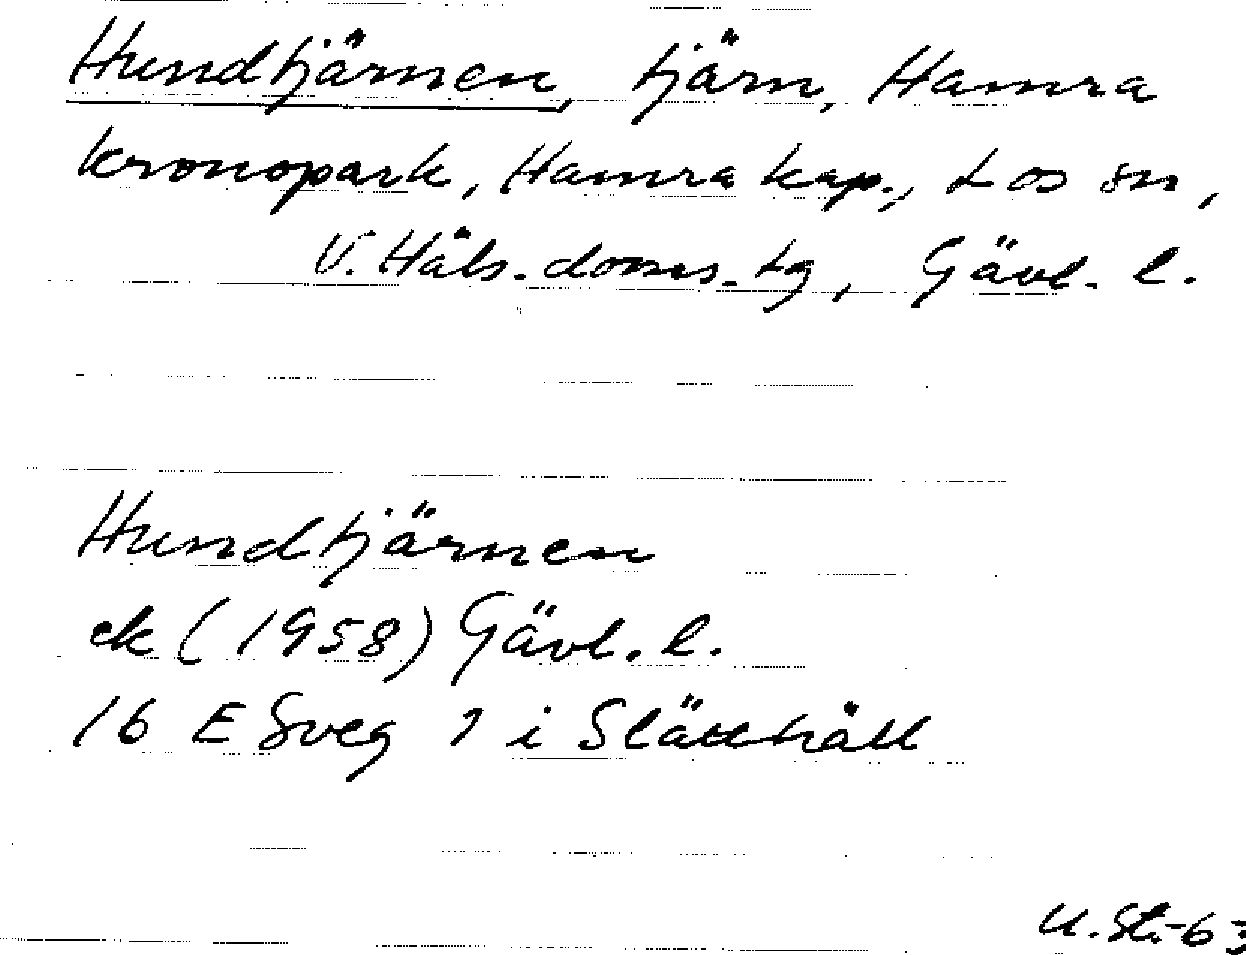 Hundtjärnen, tjärn, Hamra
kronopark, Hamra kap., Los sn,
V. Häls. doms. tg, Gävl. l.
Hundtjärnen
ek (1958) Gävl. l.
16 E Sveg 7 i Slätthåll
U. St. -63